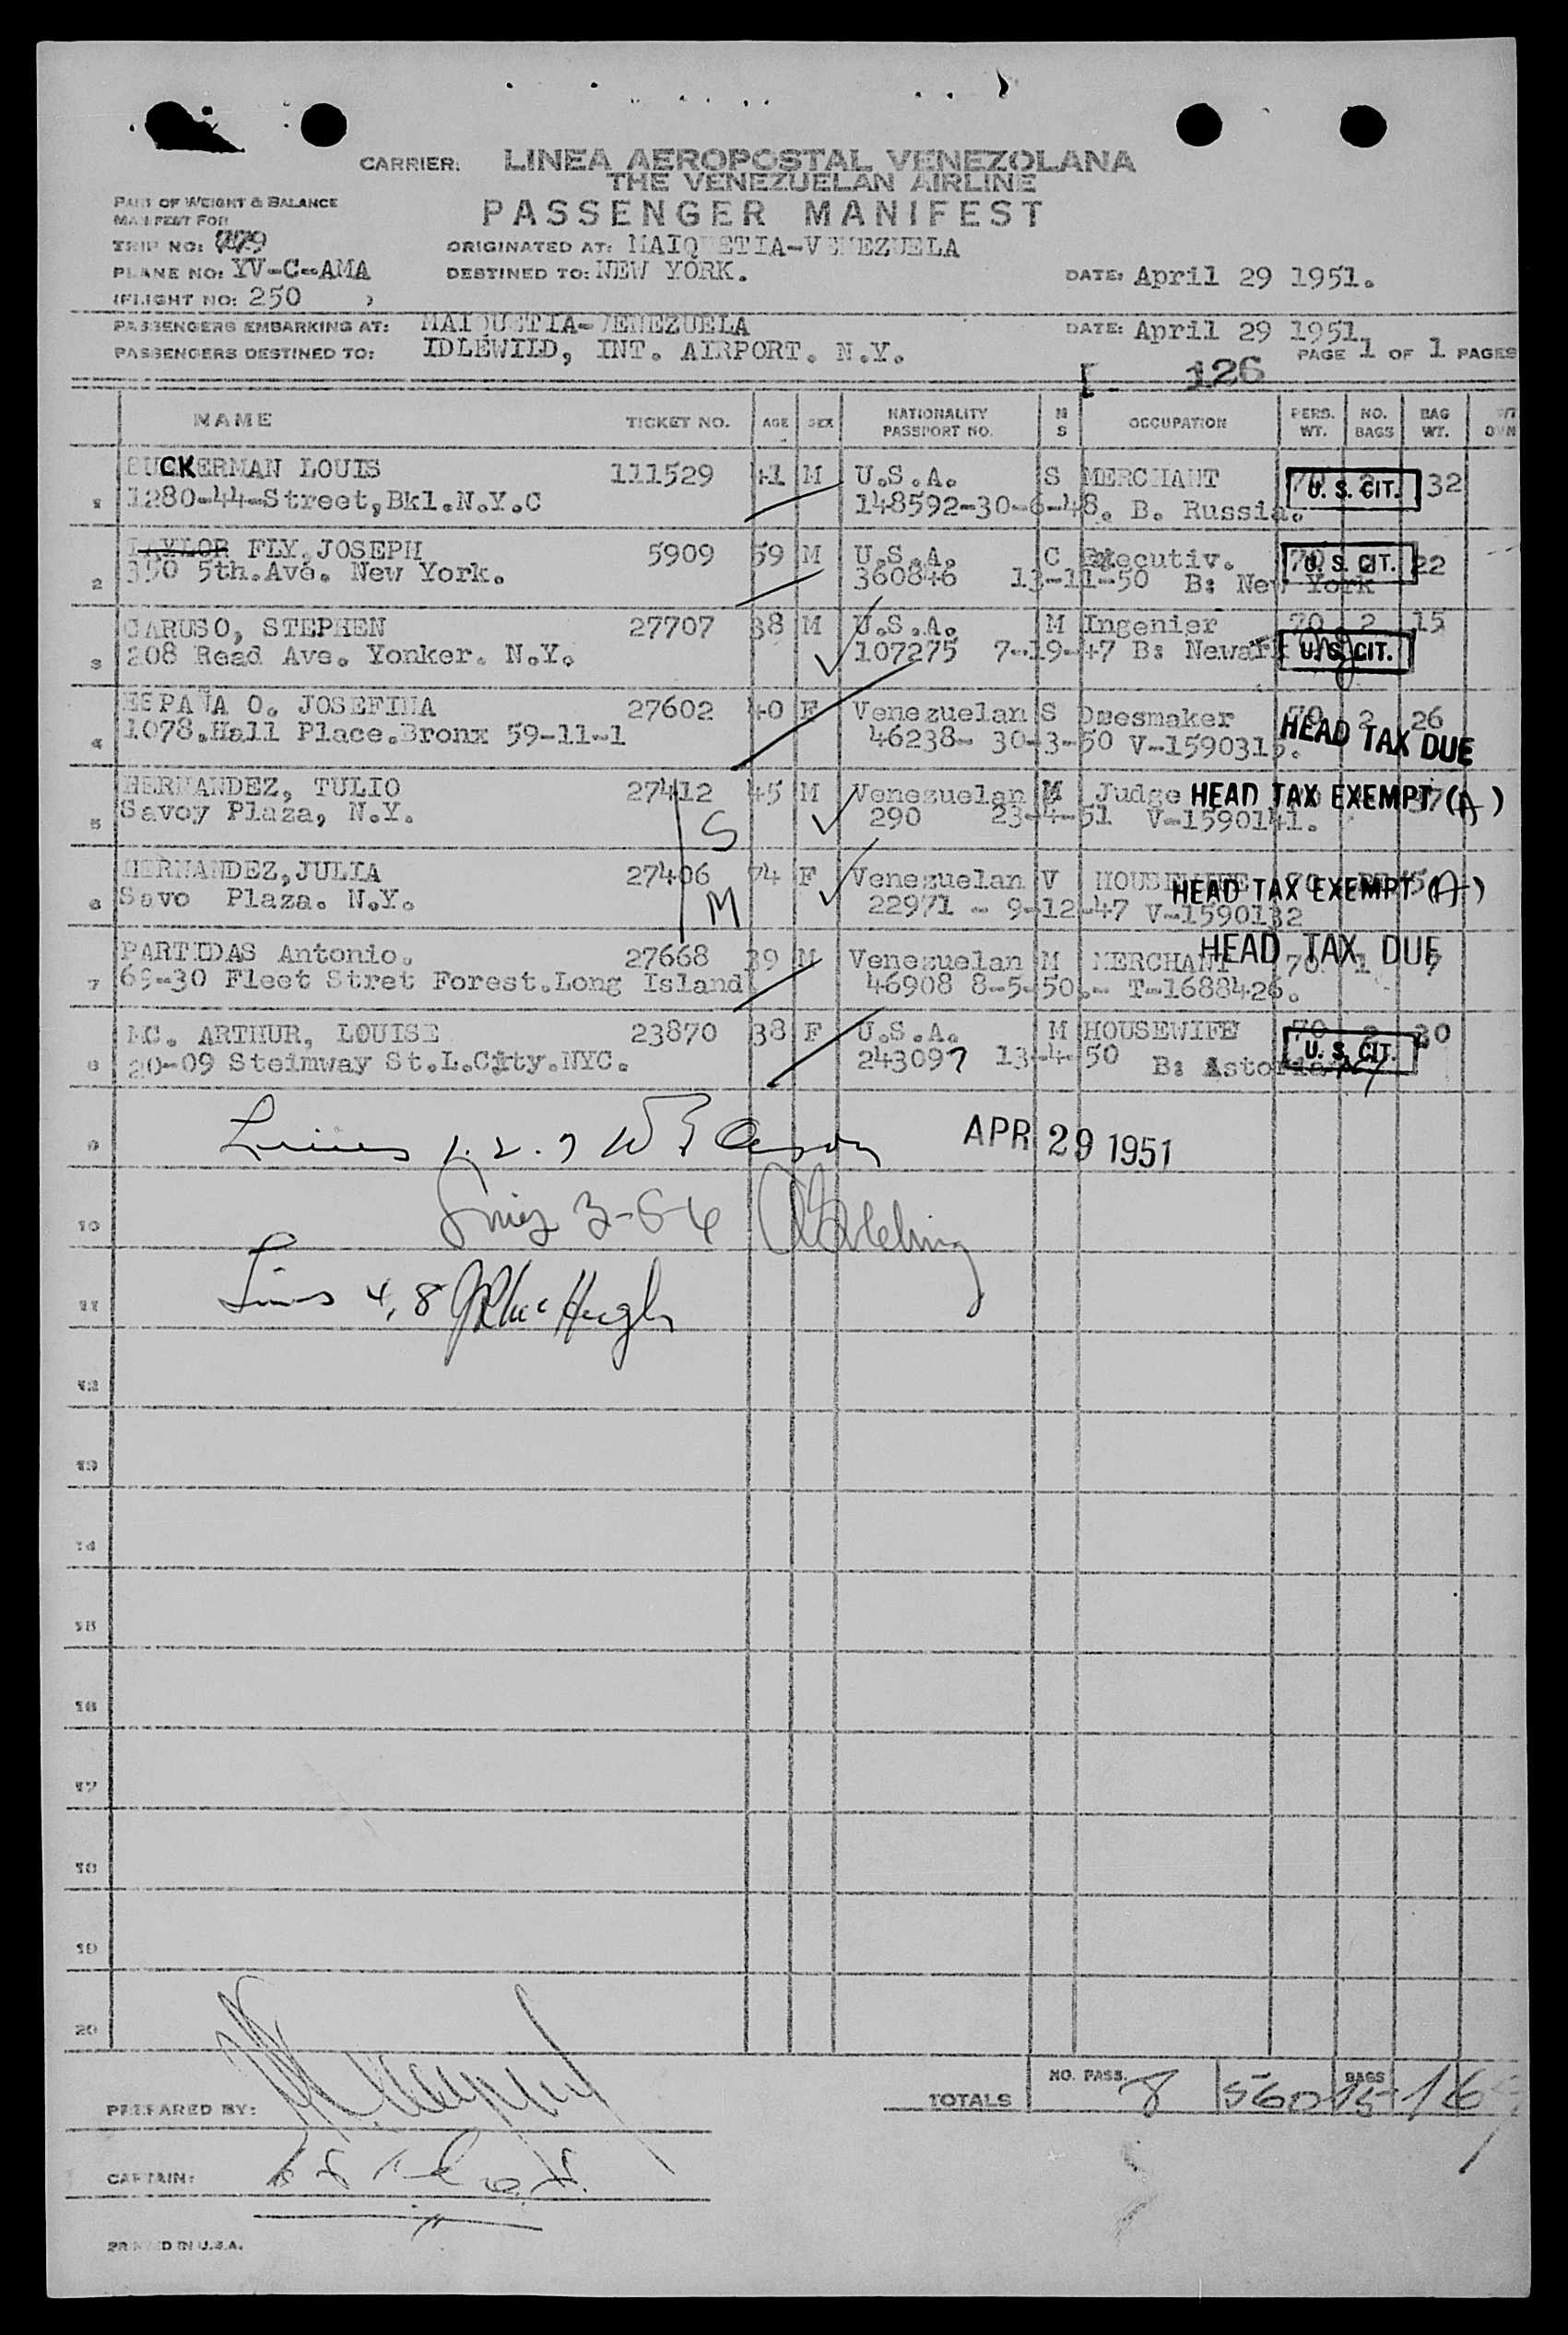 CARRIER: LINEA AEROPOSTAL VENEZOLANA
THE VENEZUELAN AIRLINE
PART OF WEIGHT & BALANCE
MANIFEST FOR
PASSENGER MANIFEST
TRIP NO:
ORIGINATED AT: MAIQUETIA-VENEZUELA
PLANE NO: YV-C-AMA
DESTINED TO: NEW YORK.
DATE: April 29 1951.
(FLIGHT NO: 250 )
PASSENGERS EMBARKING AT: MAIQUETIA-VENEZUELA
DATE: April 29 1951.
PASSENGERS DESTINED TO: IDLEWILD, INT. AIRPORT. N.Y.
PAGE 1 OF 1 PAGES
126
NAME TICKET NO. AGE SEX NATIONALITY PASSPORT NO. M S OCCUPATION PERS. WT. NO. BAGS BAG WT.
1 CKERMAN LOUIS 111529 41 M U.S.A. S MERCHANT 70 32
U. S. CIT.
1280-44-Street,Bkl.N.Y.C 148592-30-6-48. B. Russia.
2 TAYLOR FLY.JOSEPH 5909 59 M U.S.A. C Executiv. 70 22
U. S. CIT.
350 5th.Ave. New York. 360846 13-11-50 B: New York
3 CARUSO, STEPHEN 27707 38 M U.S.A. M Ingenier 70 2 15
208 Read Ave. Yonker. N.Y. 107275 7-19-47 B: Newark
U. S. CIT.
4 ESPAÑA O. JOSEFINA 27602 40 F Venezuelan S Dressmaker 70 2 26
1078.Hall Place.Bronx 59-11-1 46238- 30-3-50 V-1590315.
HEAD TAX DUE
5 HERNANDEZ, TULIO 27412 45 M Venezuelan M Judge
HEAD TAX EXEMPT (A)
Savoy Plaza, N.Y. S 290 23-4-51 V-1590141.
6 HERNANDEZ,JULIA 27406 74 F Venezuelan V HOUSEWIFE
HEAD TAX EXEMPT (A)
Savo Plaza. N.Y. M 22971 - 9-12-47 V-1590132
HEAD TAX DUE
7 PARTIDAS Antonio. 27668 39 M Venezuelan M MERCHANT 70 1 7
69-30 Fleet Stret Forest.Long Island 46908 8-5-50.- T-1688426.
8 MC. ARTHUR, LOUISE 23870 38 F U.S.A. M HOUSEWIFE 70 2 20
U. S. CIT.
20-09 Steimway St.L.City.NYC. 243097 13-4-50 B: Astoria
9 Lines 1. 2. 7
APR 29 1951
10 Lines 3-5-6
11 Lines 4, 8 McHugh
12
13
14
15
16
17
18
19
20
TOTALS NO. PASS. 8 560 BAGS 15
PREPARED BY:
CAPTAIN:
PRINTED IN U.S.A.